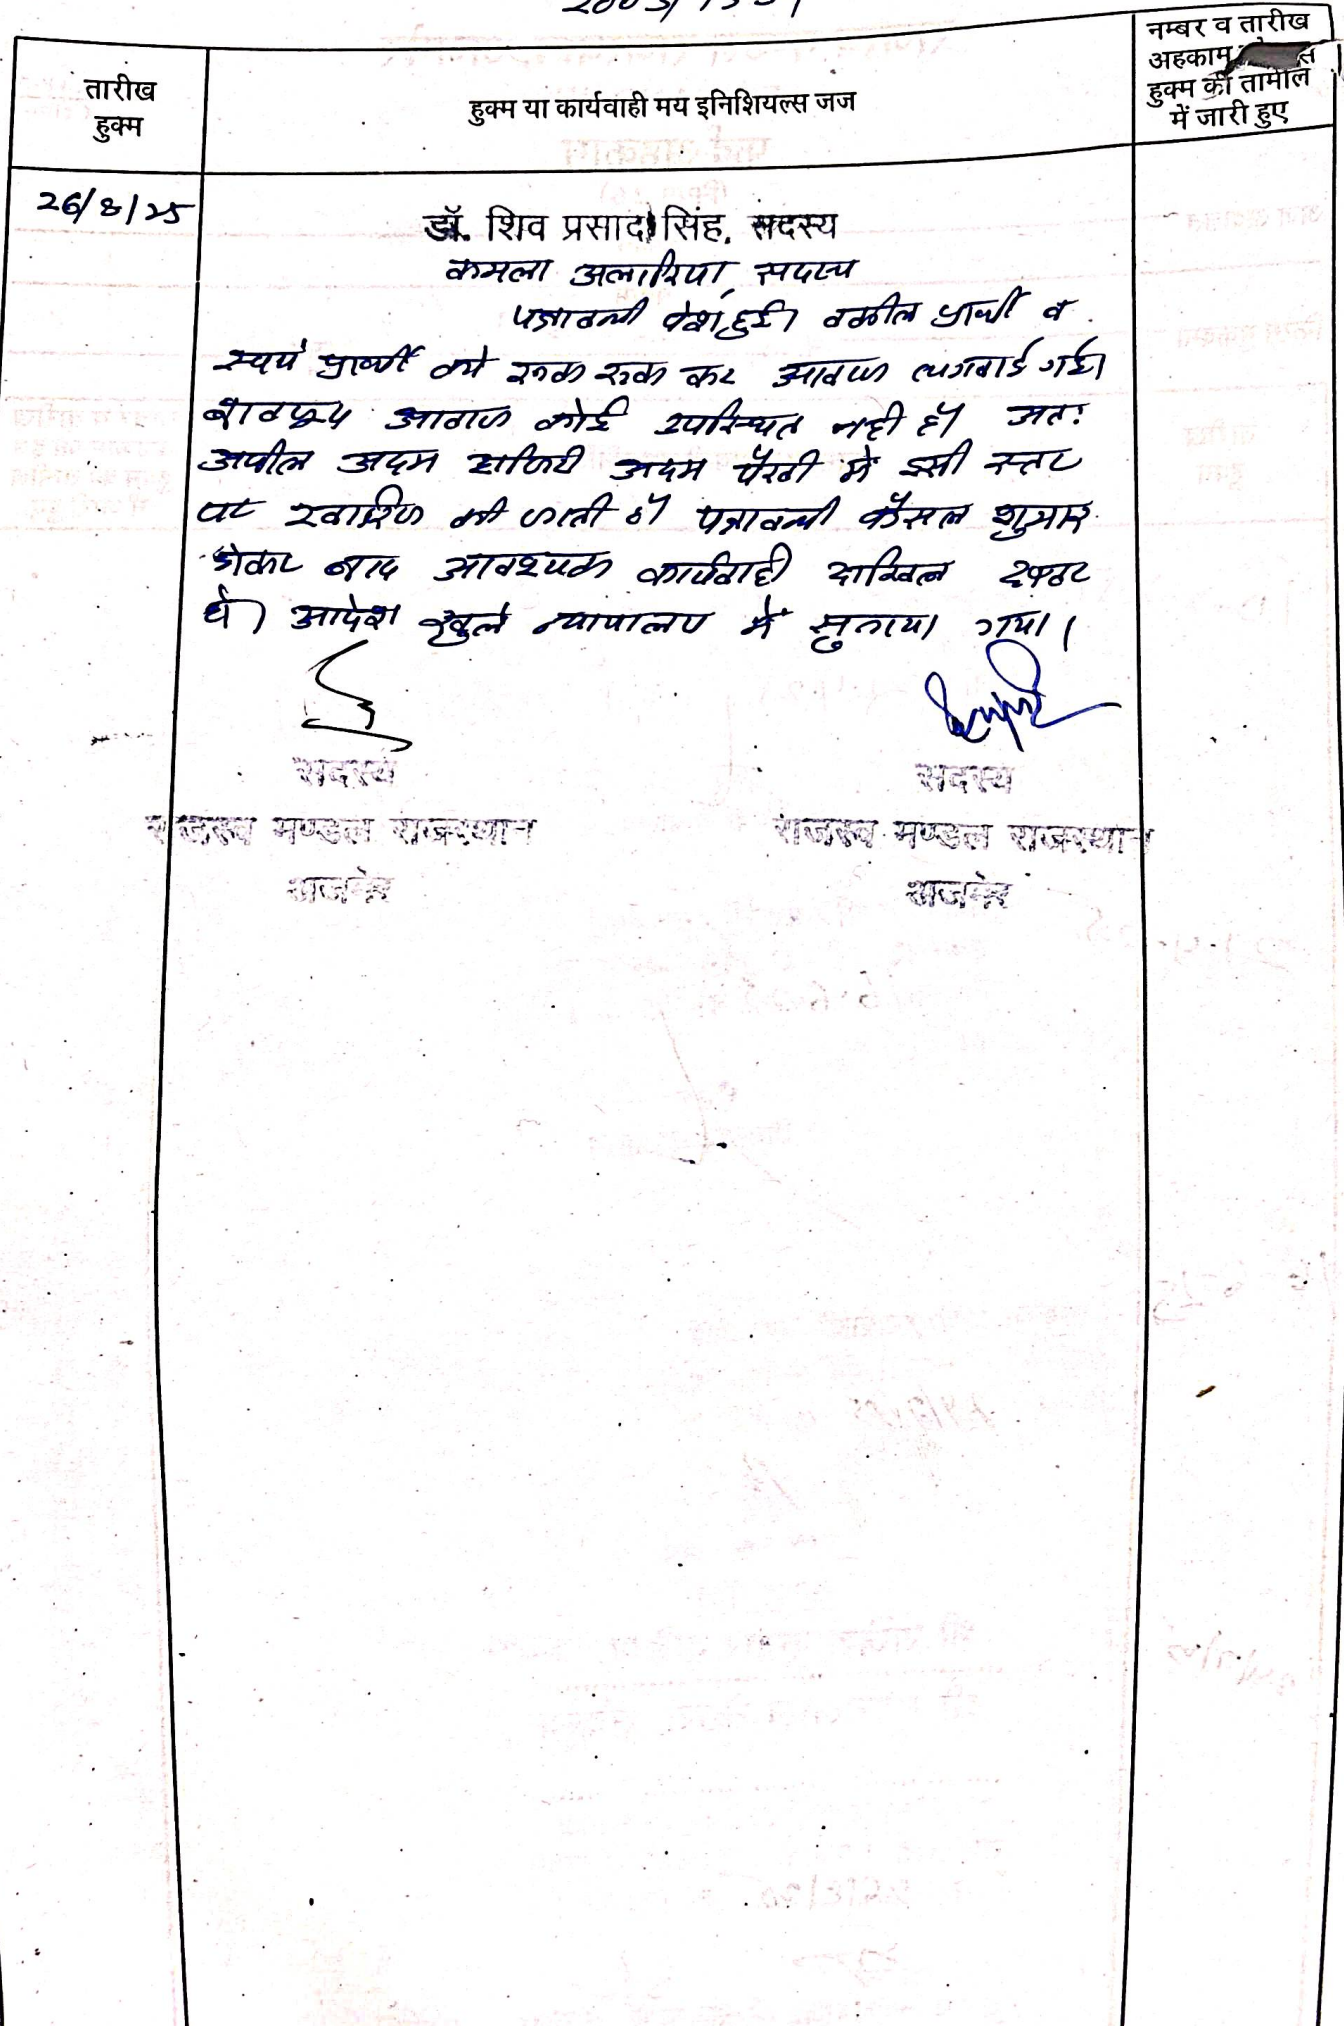 तारीख
हुक्म
हुक्म या कार्यवाही मय इनिशियल्स जज
नम्बर व तारीख
अहकाम
हुक्म की तामील
में जारी हुए
26/8/25
डॉ. शिव प्रसाद सिंह, सदस्य
कमला अलारिया, सदस्य
पत्रावली पेश हुई। वकील प्रार्थी व
स्वयं प्रार्थी को रूक रूक कर आवाज लगवाई गई।
बावजूद आवाज कोई उपस्थित नही है। अतः
अपील अदम हाजिरी अदम पैरवी में इसी स्तर
पर खारिज की जाती है। पत्रावली फैसल शुमार
होकर बाद आवश्यक कार्यवाही दाखिल दफ्तर
हो। आदेश खुले न्यायालय में सुनाया गया।
सदस्य
राजस्व मण्डल राजस्थान
अजमेर
सदस्य
राजस्व मण्डल राजस्थान
अजमेर